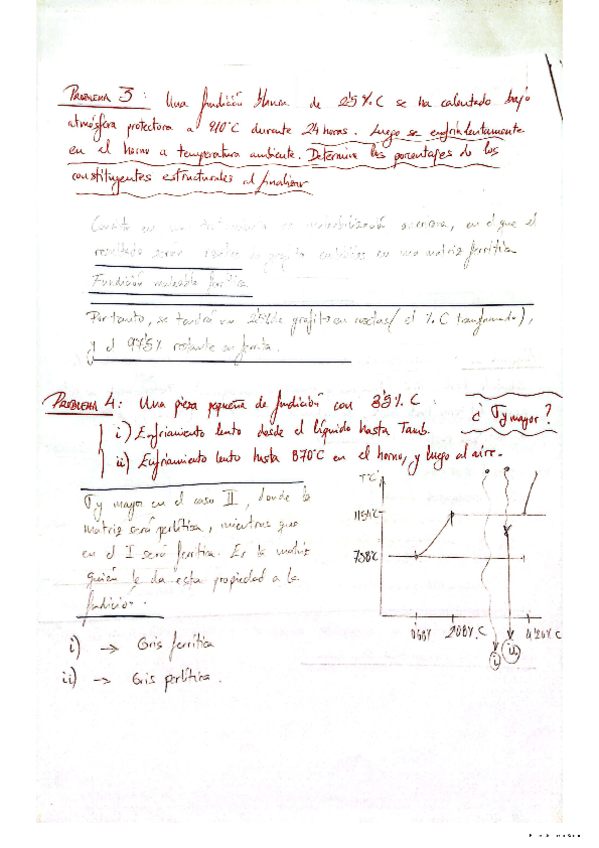 PROBLEMA 3: Una fundición blanca de 2'5%C se ha calentado bajo
atmósfera protectora a 910°C durante 24 horas. Luego se enfría lentamente
en el horno a temperatura ambiente. Determina los porcentajes de los
constituyentes estructurales al finalizar
en una de maleabilización americana, en el que el
resultado serán de grafito en una matriz ferrítica
Fundición maleable ferrítica
Por tanto, se tendrá un 2'5% de grafito en nódulos (el %C transformado),
y el 97'5% restante en ferrita.
PROBLEMA 4: Una pieza pequeña de fundición con 3'5% C.
¿σy mayor?
i) Enfriamiento lento desde el líquido hasta Tamb.
ii) Enfriamiento lento hasta 870°C en el horno, y luego al aire.
σy mayor en el caso II, donde la
matriz será perlítica, mientras que
en el I será ferrítica. Es la matriz
quién le da esta propiedad a la
fundición.
i) → Gris ferrítica
ii) → Gris perlítica.
T°C
1154°C
738°C
0'68% 2'08% C 4'26%C
i ii